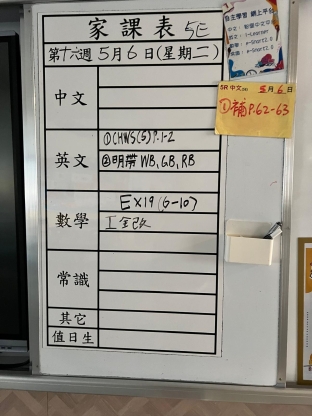 家課表 5E
第十六週 5月6日(星期二)
中文
英文
①CHWS(5)P.1-2
②明帶 WB, GB, RB
數學
EX19 (6-10)
工全改
常識
其它
值日生
自主學習 網上平台
5R 中文 5月6日
①補P.62-63